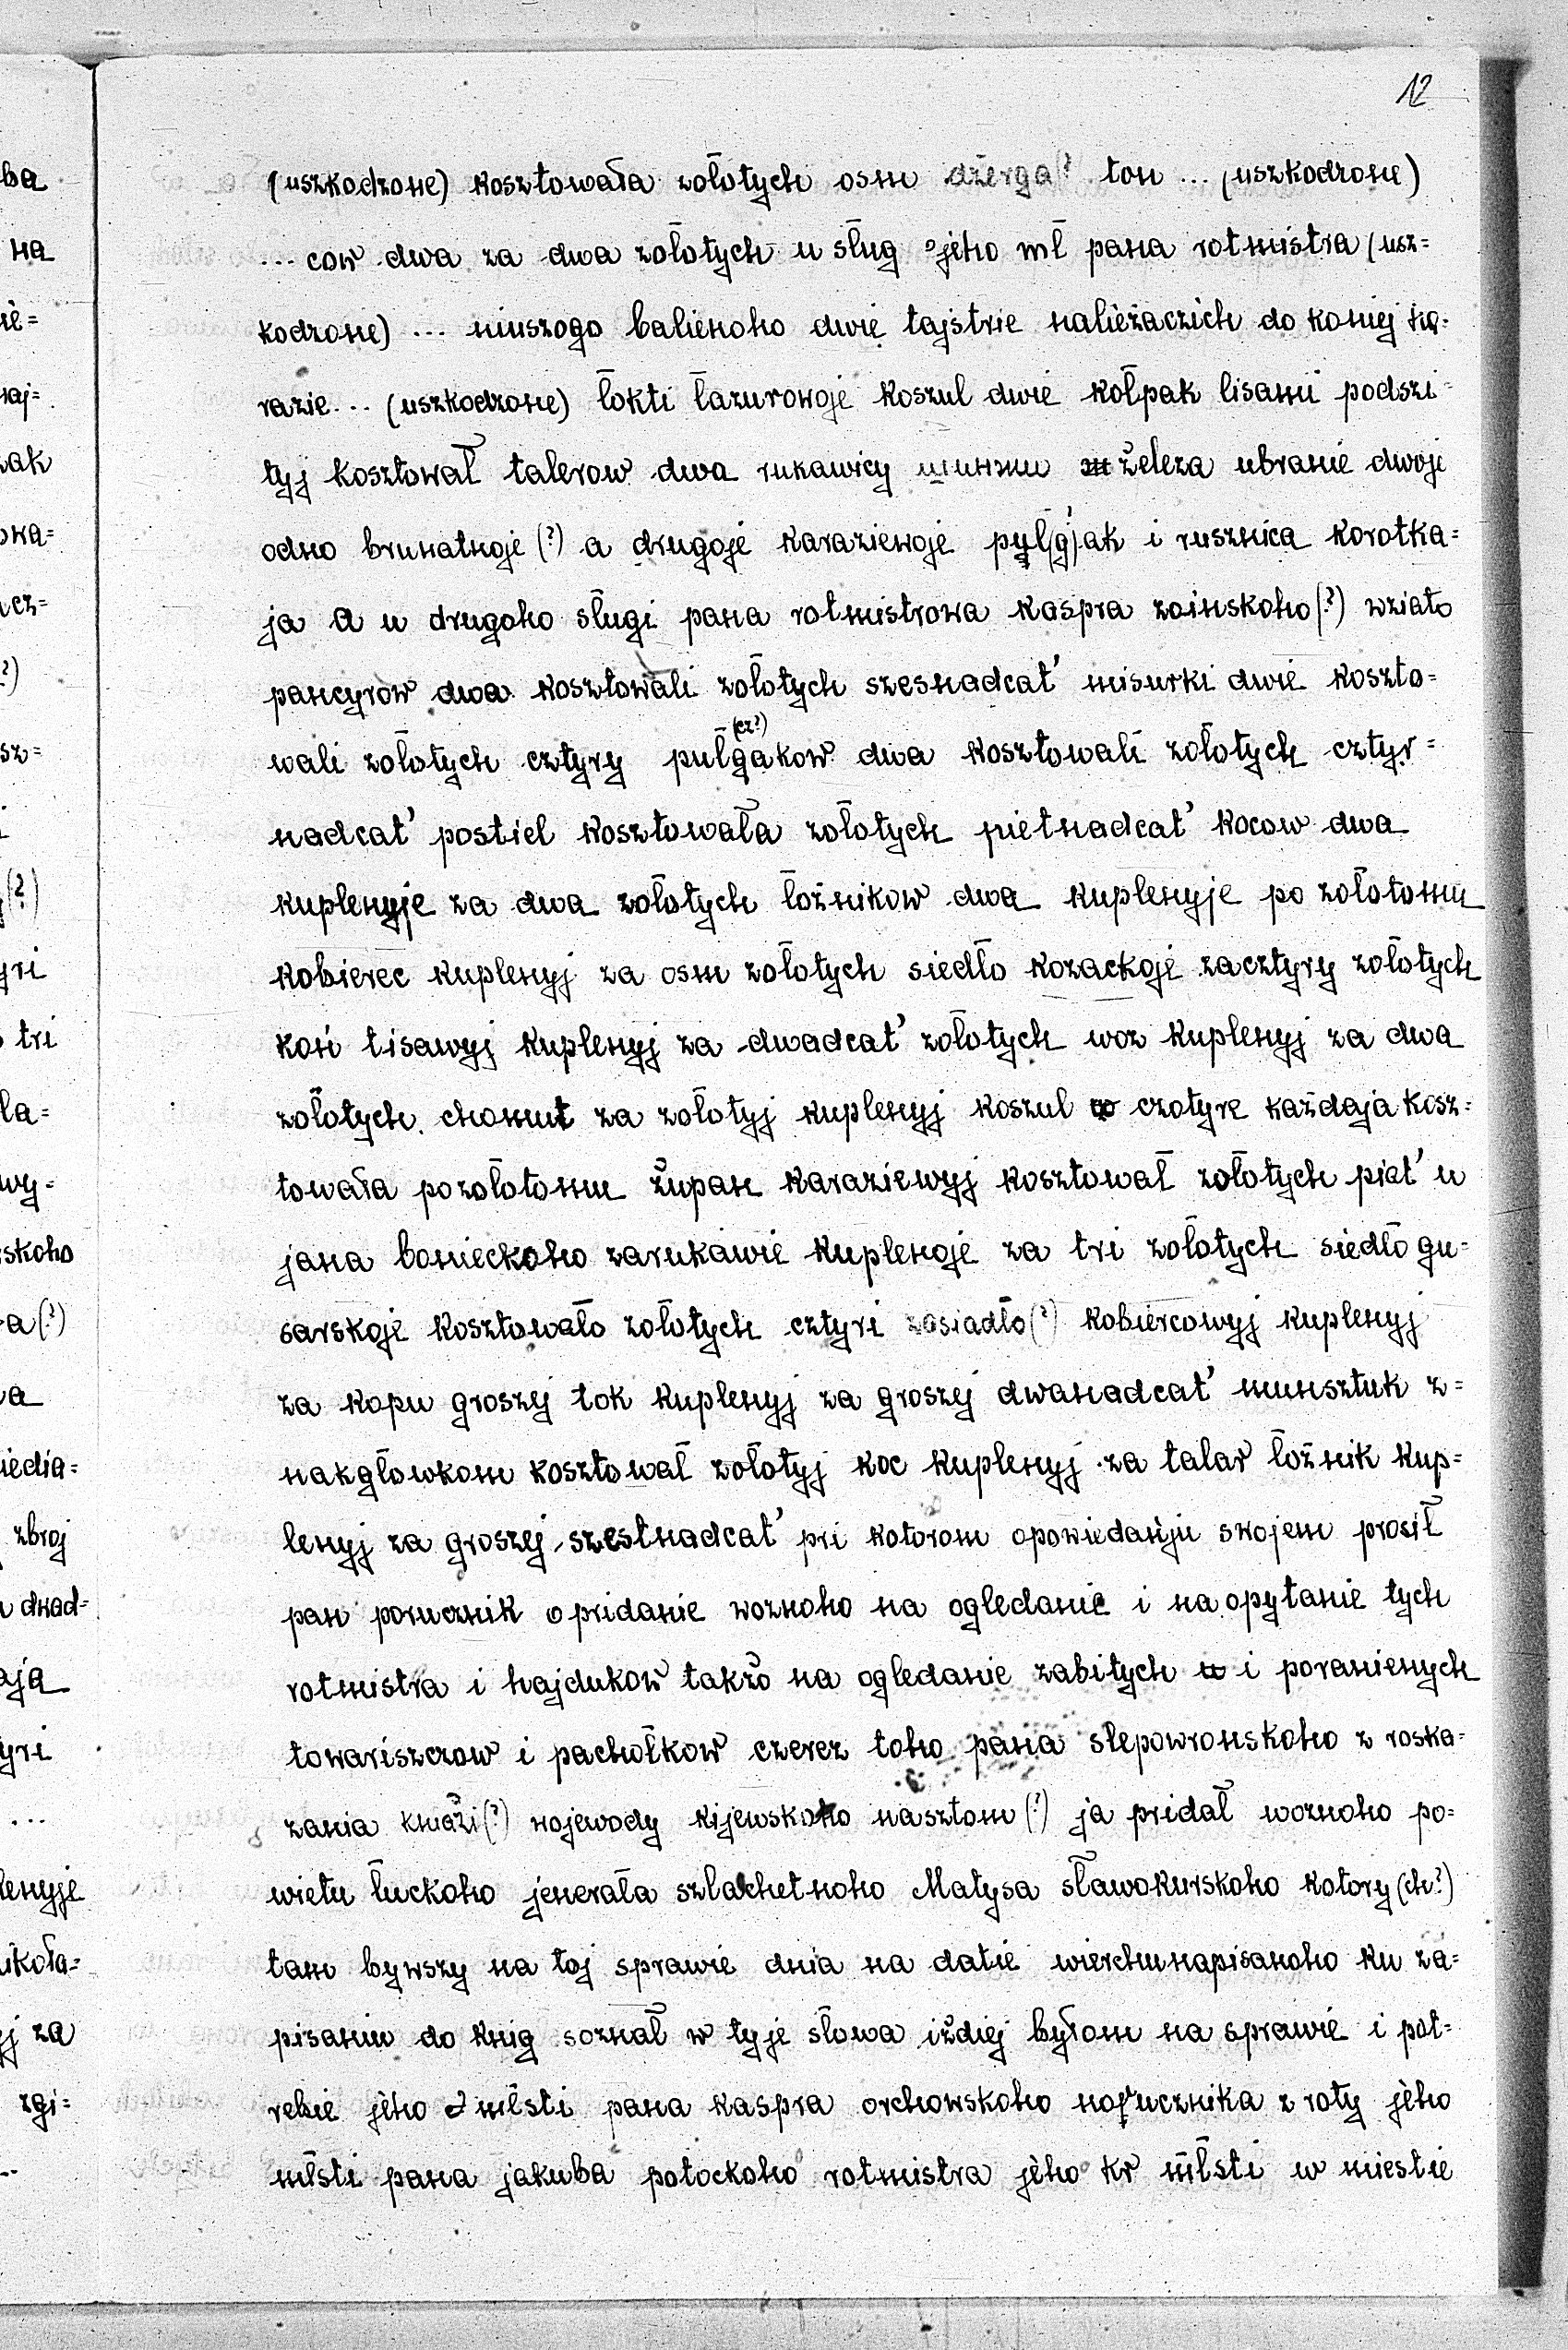 12
(uszkodzone) kosztowała zołotych osm dżerga? ton ... (uszkodzone)
... cow dwa za dwa zołotych u sług jeho mł pana rotmistra (usz=
kodzone) ... niuszogo balienoho dwie tajstrie nalieżaczich do koniej ka=
razie... (uszkodzone) łokti łazurowoje koszul dwie kołpak lisami podszi
tyj kosztował talerow dwa rukawicy żeleza ubranie dwoje
odno brunatnoje (?) a drugoje karaziewoje pyl(g)ak i rusznica korotka=
ja A u drugoho sługi pana rotmistrowa kaspra zoinskoho (?) wziato
pancyrow dwa kosztowali zołotych szesnadcat' misurki dwie koszto=
wali zołotych cztyry pulgakow (cz?) dwa kosztowali zołotych cztyr=
nadcat' postiel kosztowała zołotych pietnadcat' kocow dwa
kuplenyje za dwa zołotych łożnikow dwa kuplenyje po zołotomu
kobierec kuplenyj za osm zołotych siedło kozackoje za cztyry zołotych
koń tisawyj kuplenyj za dwadcat' zołotych woz kuplenyj za dwa
zołotych chomut za zołotyj kuplenyj koszul czotyre każdaja kosz=
towała pozołotomu żupan karaziewyj kosztował zołotych piat' u
jana bonieckoho zarukawie kuplenoje za tri zołotych siedło gu=
sarskoje kosztowało zołotych cztyri zasiadło (?) kobiercowyj kuplenyj
za kopu groszej tok kuplenyj za groszej dwanadcat' munsztuk z=
nakgłowkom kosztował zołotyj koc kuplenyj za talar łożnik kup=
lenyj za groszej szestnadcat' pri kotorom opowiedańju swojem prosił
pan porucznik o pridanie woznoho na ogledanie i na opytanie tych
rotmistra i hajdukow takżo na ogledanie zabitych i poranienych
towariszczow i pachołkow czerez toho pana slepowronskoho z roska=
zania kniaźi (?) wojewody kijewskoho nasztom (?) ja pridał woznoho po=
wietu łuckoho jenerała szlachetnoho Matysa sławokurskoho kotory (ch?)
tam bywszy na toj sprawie dnia na datie wierchunapisanoho ku za=
pisaniu do knig soznał w tyje słowa iżdiej byłom na sprawie i pot=
rebie jeho młsti pana kaspra orchowskoho porucznika z roty jeho
młsti pana jakuba potockoho rotmistra jeho kr młsti w miestie